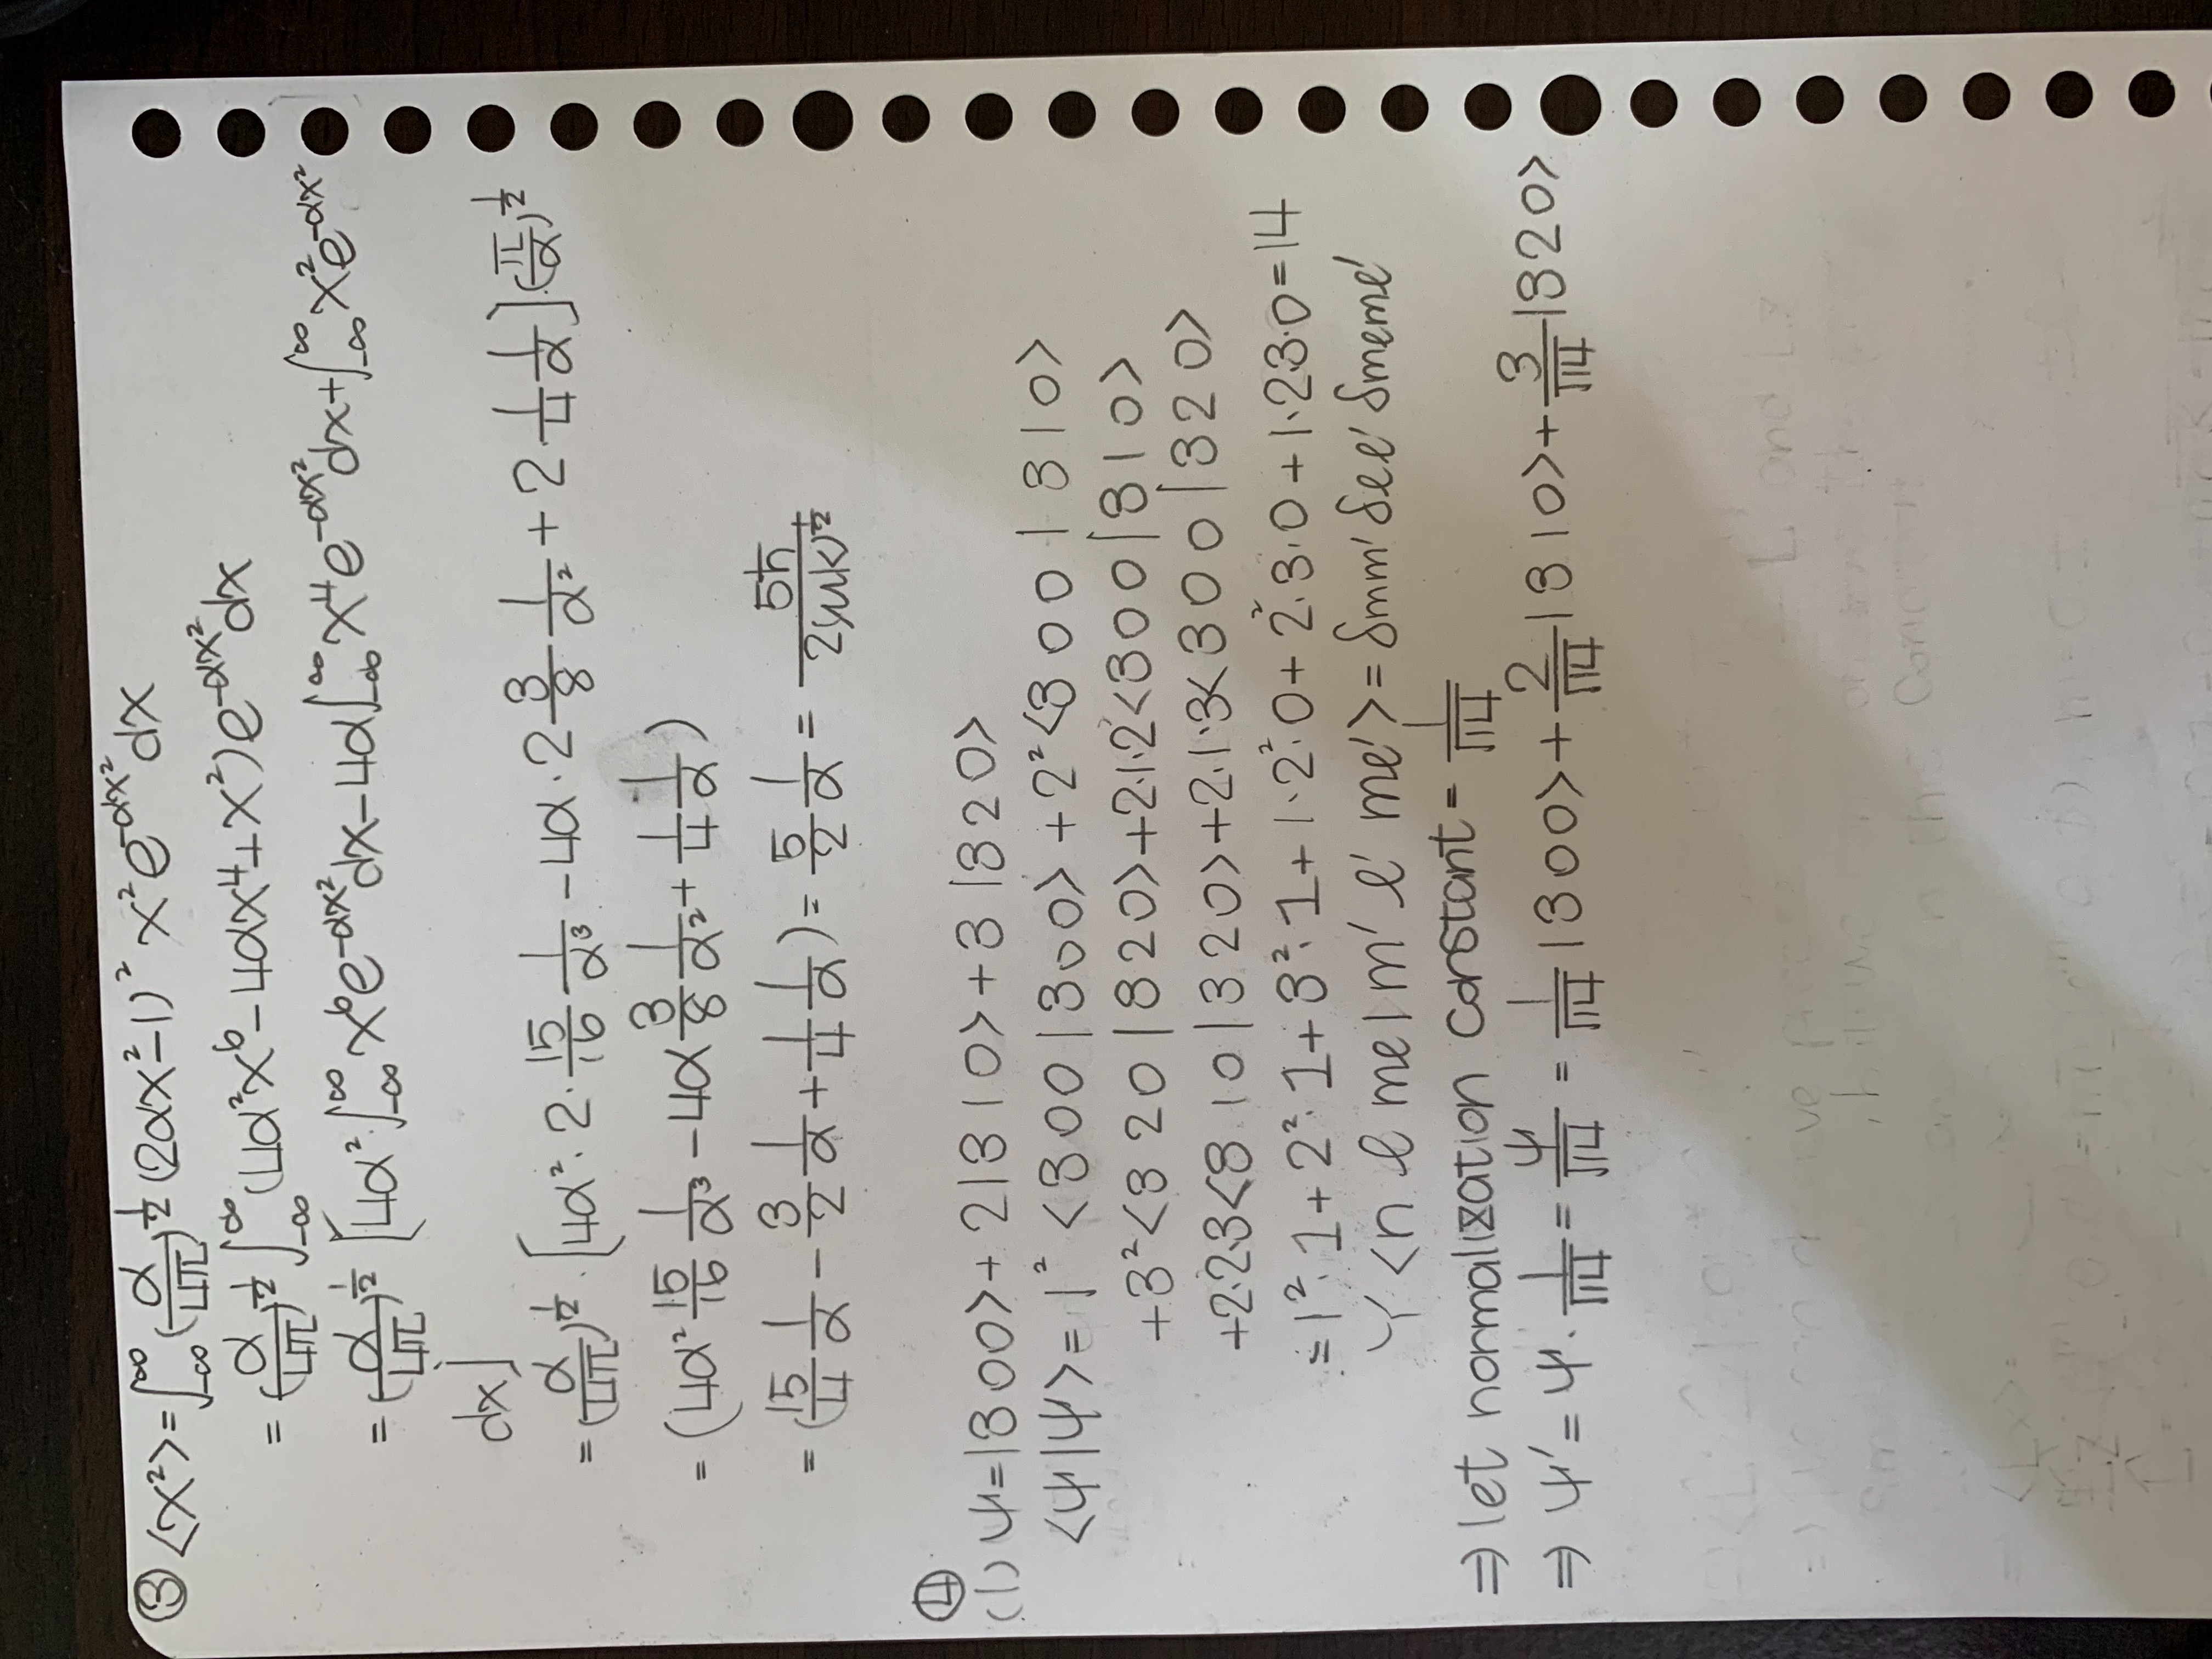 ③ <x²> = ∫_{-∞}^{∞} (α/4π)^{1/2} (2αx²-1)² x² e^{-αx²} dx
= (α/4π)^{1/2} ∫_{-∞}^{∞} (4α²x⁶ - 4αx⁴ + x²) e^{-αx²} dx
= (α/4π)^{1/2} [4α² ∫_{-∞}^{∞} x⁶ e^{-αx²} dx - 4α ∫_{-∞}^{∞} x⁴ e^{-αx²} dx + ∫_{-∞}^{∞} x² e^{-αx²}
dx]
= (α/4π)^{1/2} · [4α² · 2 · 15/16 1/α³ - 4α · 2 3/8 1/α² + 2 1/4 1/α] · (π/α)^{1/2}
= (4α² 15/16 1/α³ - 4α 3/8 1/α² + 1/4 1/α)
= (15/4 1/α - 3/2 1/α + 1/4 1/α) = 5/2 1/α = 5ħ/2(μk)^{1/2}
④
(1) ψ = |300> + 2|310> + 3|320>
<ψ|ψ> = 1² <300|300> + 2² <300|310>
+ 3² <320|320> + 2·1·2 <300|310>
+ 2·2·3 <310|320> + 2·1·3 <300|320>
= 1² · 1 + 2² · 1 + 3² · 1 + 1·2²·0 + 2²·3·0 + 1·2·3·0 = 14
Y <n ℓ mℓ | m' ℓ' mℓ'> = δmm' δℓℓ' δmℓmℓ'
⇒ let normalization constant = 1/√14
⇒ ψ' = ψ · 1/√14 = ψ/√14 = 1/√14 |300> + 2/√14 |310> + 3/√14 |320>